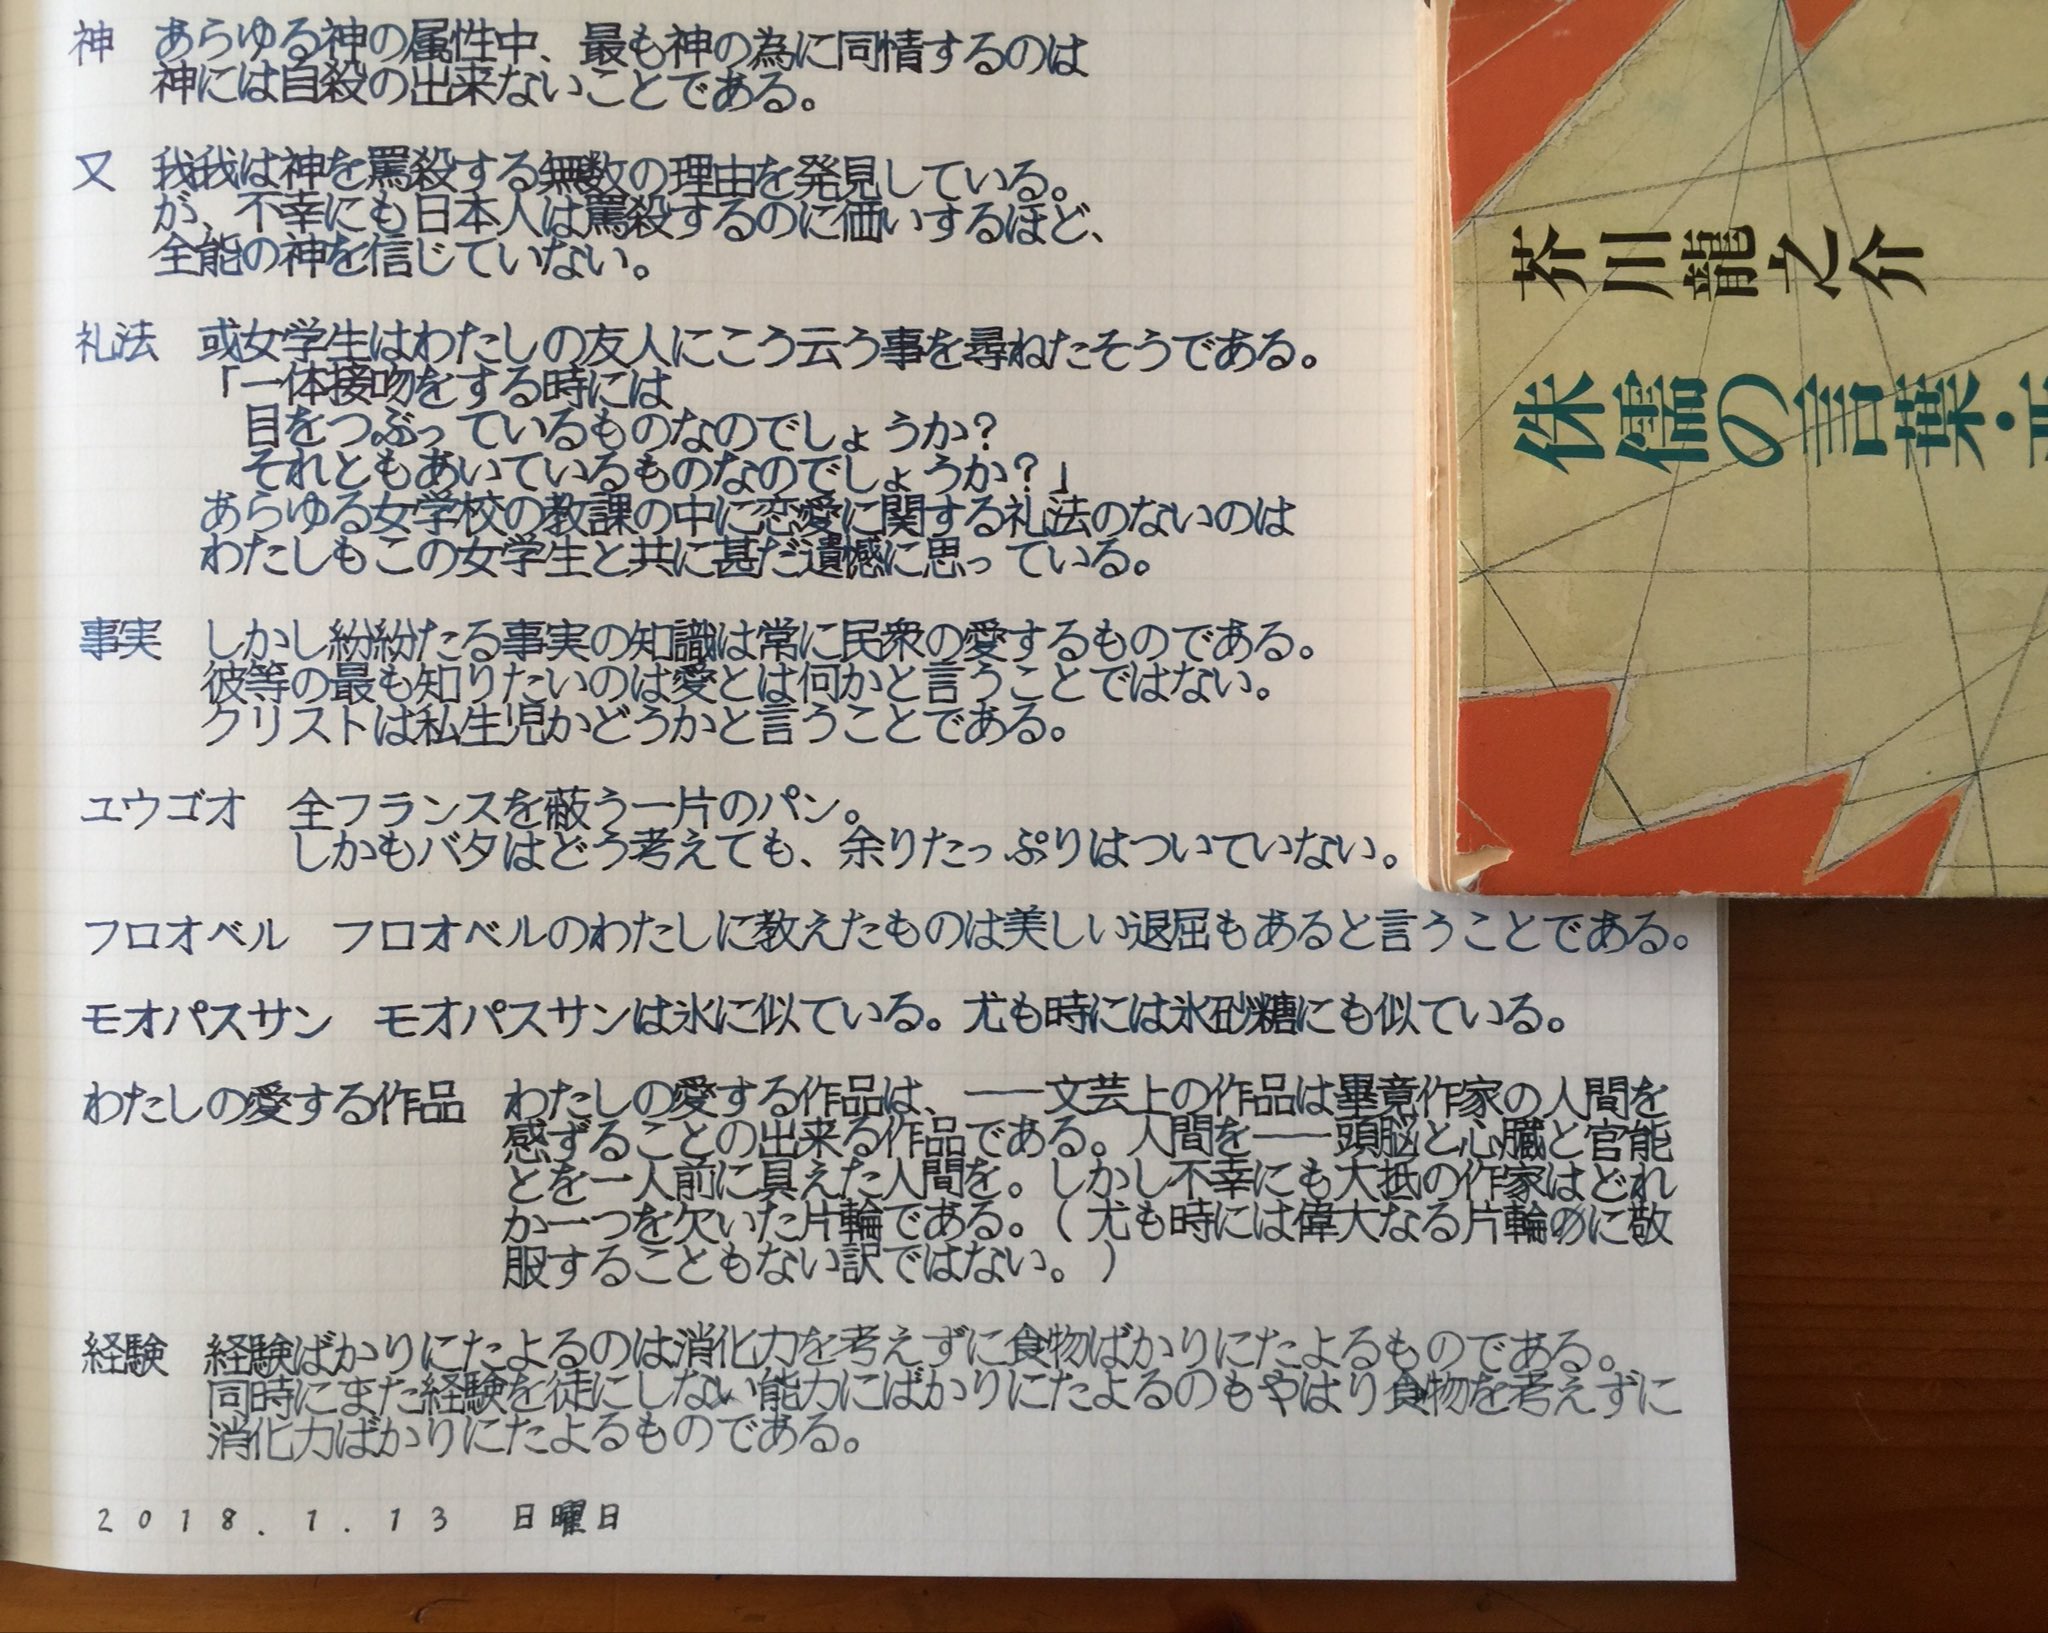 神 あらゆる神の属性中、最も神の為に同情するのは
神には自殺の出来ないことである。
又 我我は神を罵殺する無数の理由を発見している。
が、不幸にも日本人は罵殺するのに価いするほど、
全能の神を信じていない。
礼法 或女学生はわたしの友人にこう云う事を尋ねたそうである。
「一体接吻をする時には
目をつぶっているものなのでしょうか?
それともあいているものなのでしょうか?」
あらゆる女学校の教課の中に恋愛に関する礼法のないのは
わたしもこの女学生と共に甚だ遺憾に思っている。
事実 しかし紛紛たる事実の知識は常に民衆の愛するものである。
彼等の最も知りたいのは愛とは何かと言うことではない。
クリストは私生児かどうかと言うことである。
ユウゴオ 全フランスを蔽う一片のパン。
しかもバタはどう考えても、余りたっぷりはついていない。
フロオベル フロオベルのわたしに教えたものは美しい退屈もあると言うことである。
モオパスサン モオパスサンは氷に似ている。尤も時には氷砂糖にも似ている。
わたしの愛する作品 わたしの愛する作品は、——文芸上の作品は畢竟作家の人間を
感ずることの出来る作品である。人間を——頭脳と心臓と官能
とを一人前に具えた人間を。しかし不幸にも大抵の作家はどれ
か一つを欠いた片輪である。(尤も時には偉大なる片輪のに敬
服することもない訳ではない。)
経験 経験ばかりにたよるのは消化力を考えずに食物ばかりにたよるものである。
同時にまた経験を徒にしない能力にばかりにたよるのもやはり食物を考えずに
消化力ばかりにたよるものである。
2018.1.13 日曜日
芥川龍之介
侏儒の言葉・